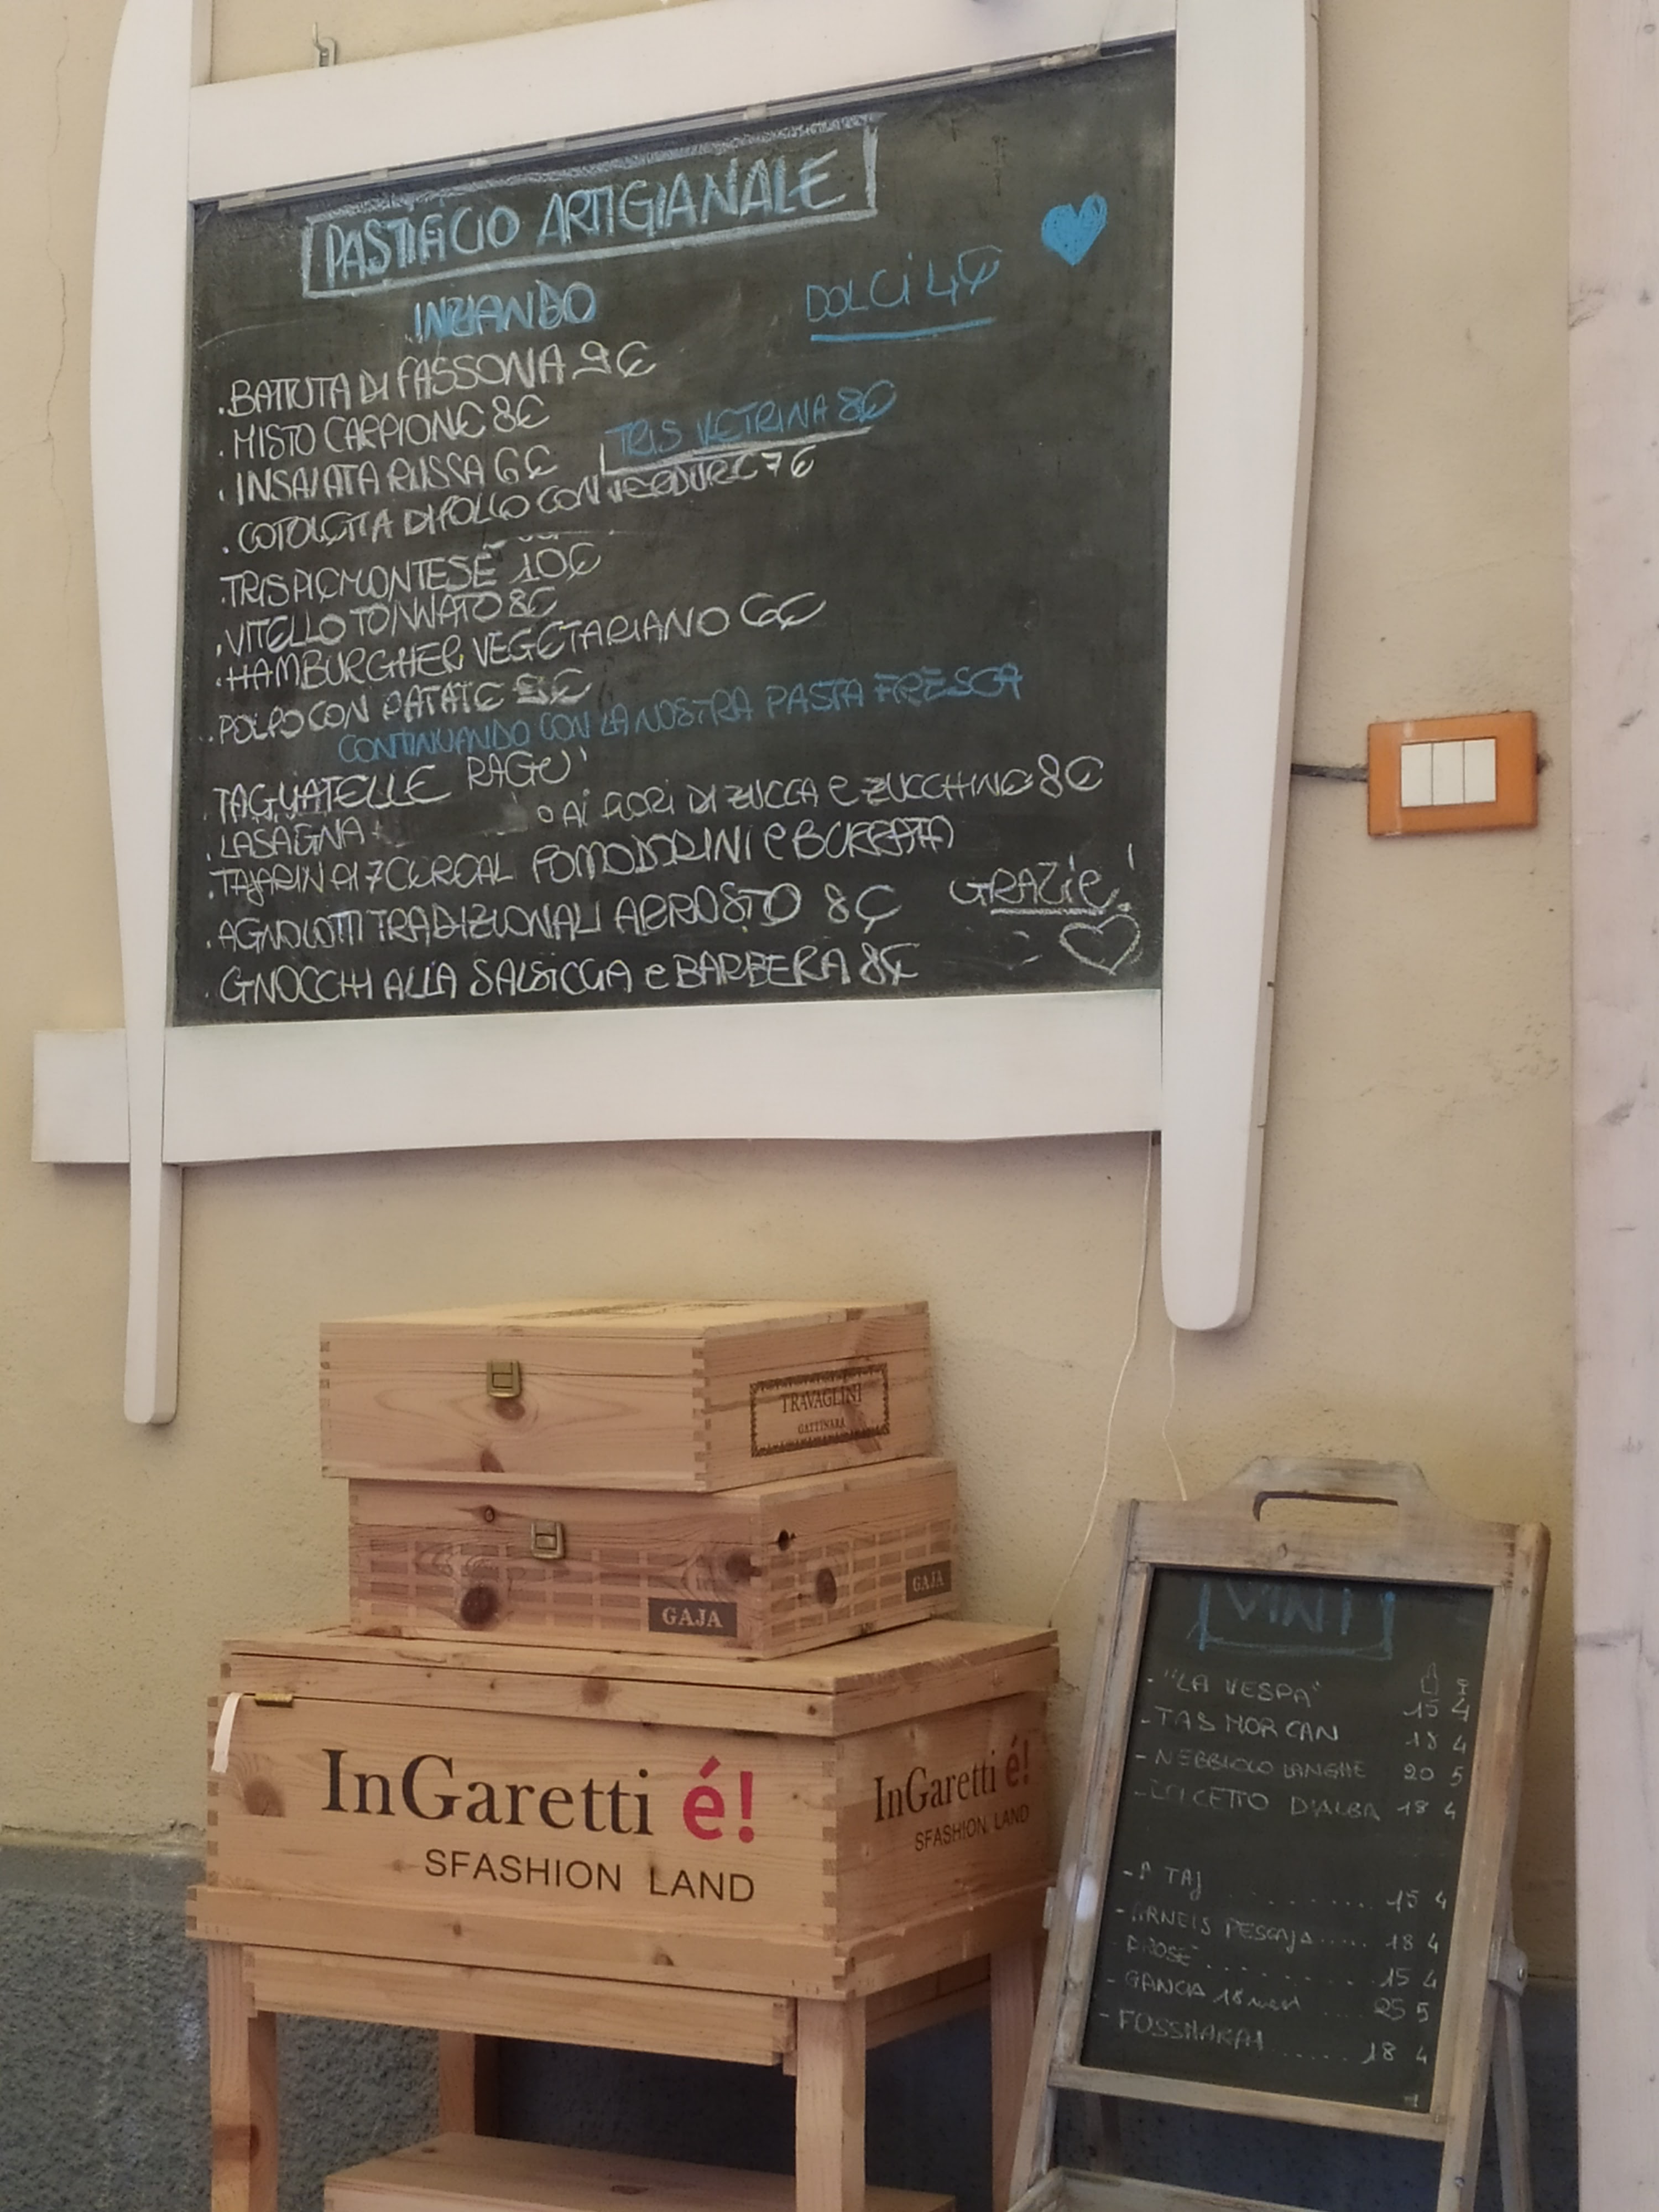 PASTIFICIO ARTIGIANALE
INIZIANDO
DOLCI 4€
. BATTUTA DI FASSONA 9€
. MISTO CARPIONE 8€
TRIS VETRINA 8€
. INSALATA RUSSA 6€
. COTOLETTA DI POLLO CON VERDURE 7€
. TRIS PIEMONTESE 10€
. VITELLO TONNATO 8€
. HAMBURGHER VEGETARIANO 6€
. POLPO CON PATATE €
CONTINUANDO CON LA NOSTRA PASTA FRESCA
. TAGLIATELLE RAGU'
. LASAGNA o AI FIORI DI ZUCCA e ZUCCHINE 8€
. TAJARIN AI 7 CEREAL POMODORINI e BURRATA
. AGNOLOTTI TRADIZIONALI ARROSTO 8€
GRAZie!
. GNOCCHI ALLA SALSICCIA e BARBERA 8€
TRAVAGLINI
GATTINARA
GAJA
GAJA
InGaretti é!
SFASHION LAND
InGaretti é!
SFASHION LAND
VINI
- "LA VESPA" 15 4
- TAB MOR CAN 18 4
- NEBBIOLO LANGHE 20 5
- DOLCETTO D'ALBA 18 4
- TAJ .......... 15 4
- ARNEIS PESCAJA ..... 18 4
ROSE ......... 15 4
- GANCIA 18 25 5
- FOSSMARAI ..... 18 4